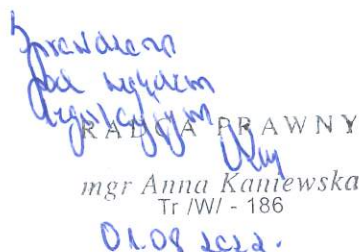 Sprawdzono
pod względem
legislacyjnym
RADCA PRAWNY
mgr Anna Kaniewska
Tr /W/ - 186
01.08.2022.